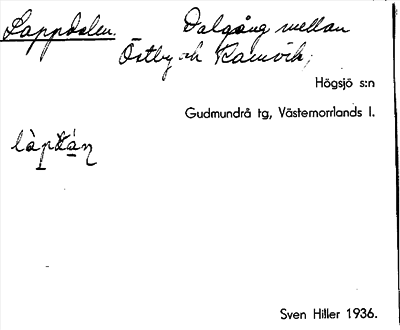 Lappdalen. Dalgång mellan
Östby och Ramvik;
Högsjö s:n
Gudmundrå tg, Västernorrlands l.
Sven Hiller 1936.